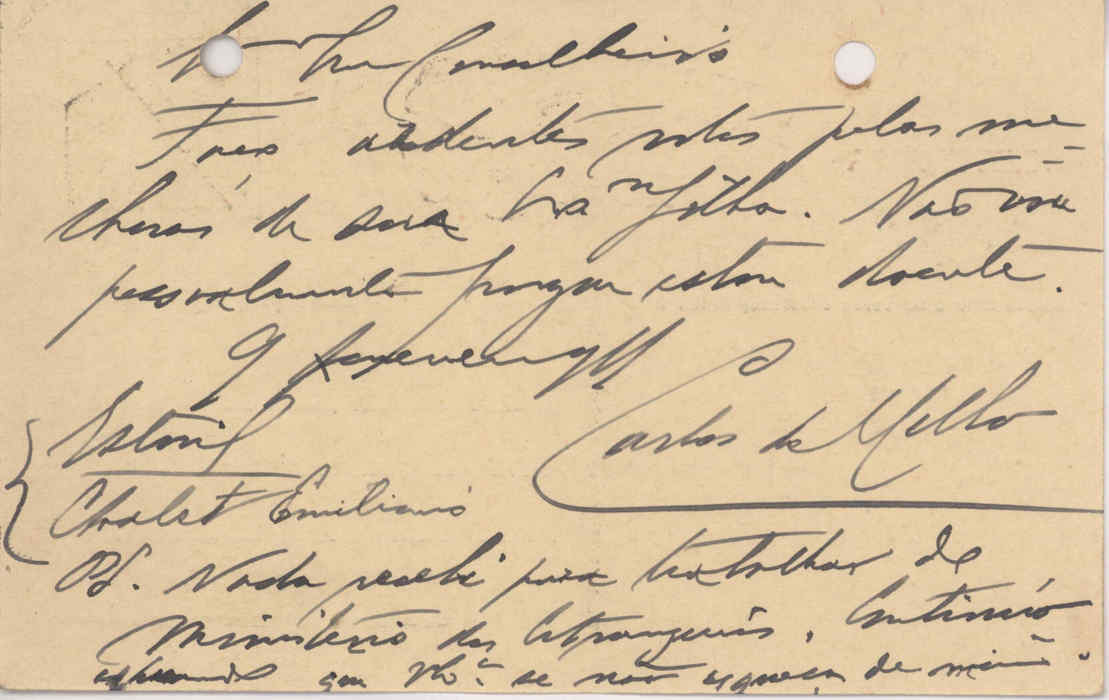 Sr. Conselheiro
Faço ardentes votos pelas me-
lhoras de sua Exa Filha. Não vou
pessoalmente porque estou doente.
Estoril
Carlos de Mello
Chalet Emiliano
PS. Nada recebi para trabalhar do
Ministério dos Estrangeiros. Continuo
esperando que V. Exa. se não esqueça de mim.